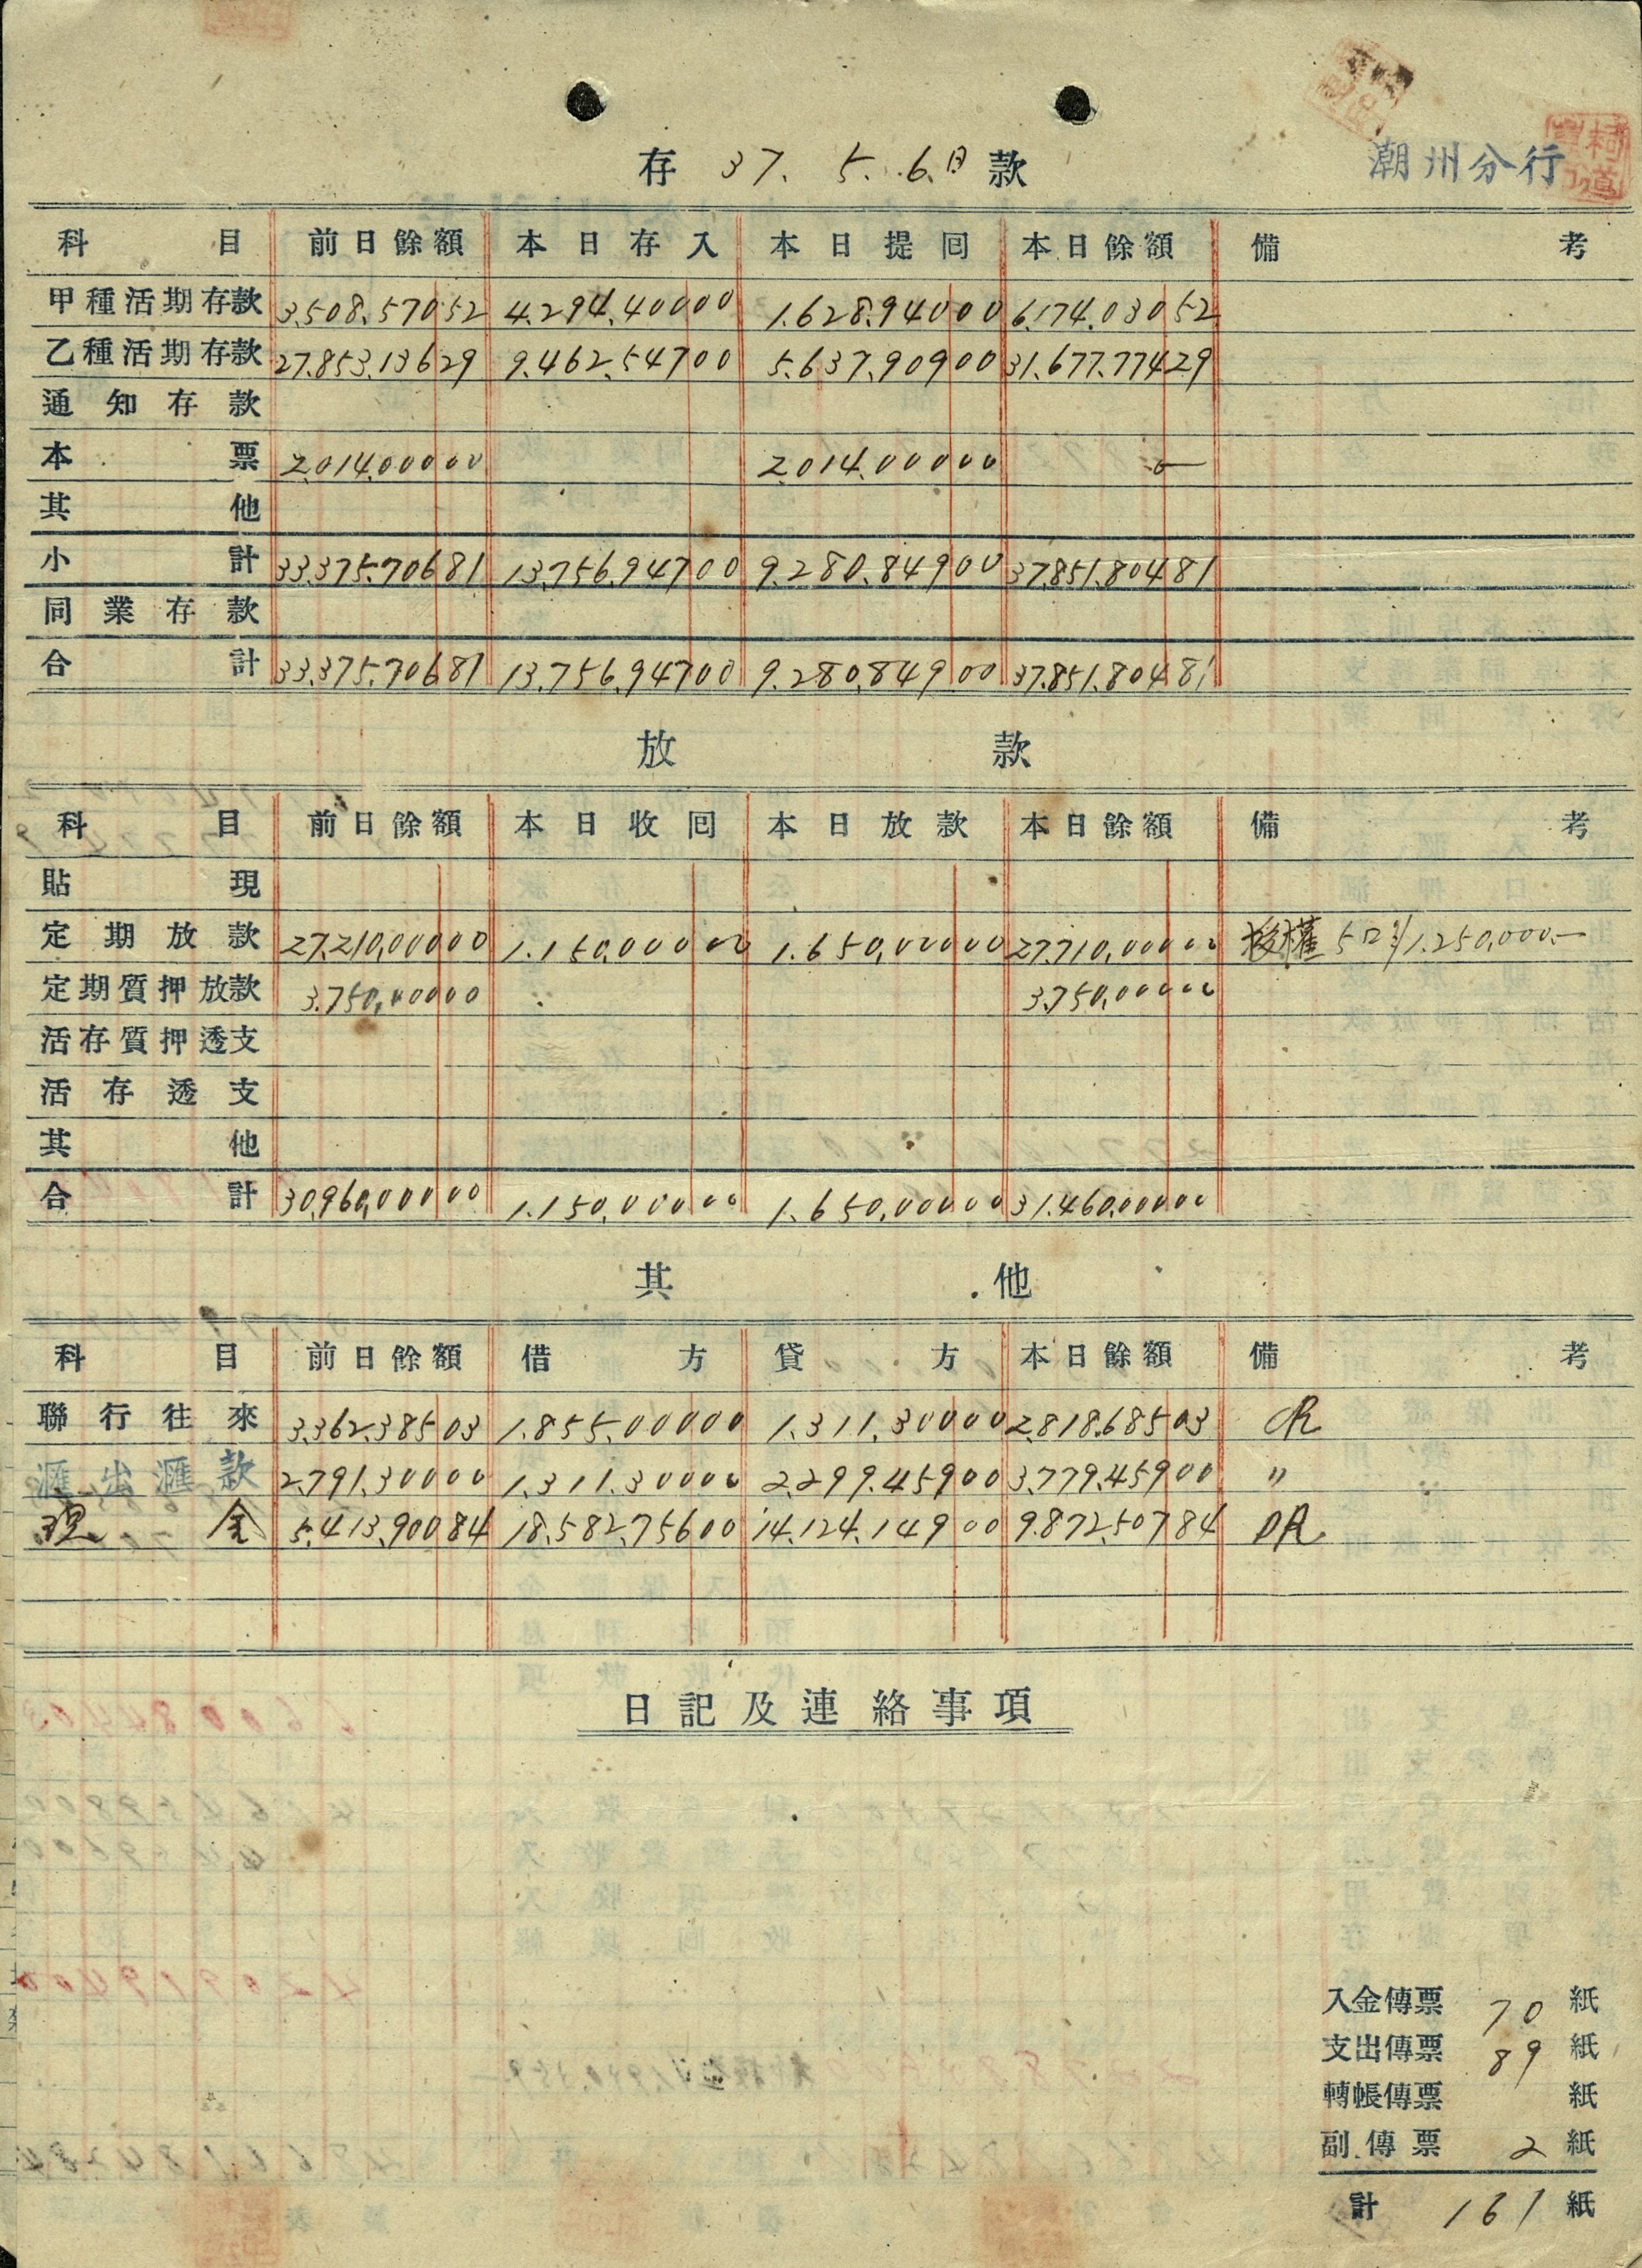 潮州分行
存 37. 5. 6.日 款
科目 前日餘額 本日存入 本日提囘 本日餘額 備考
甲種活期存款 3,508,570 52 4,294,400 00 1,628,940 00 6,174,030 52
乙種活期存款 27,853,136 29 9,462,547 00 5,637,909 00 31,677,774 29
通知存款
本票 2,014,000 00 2,014,000 00 0
其他
小計 33,375,706 81 13,756,947 00 9,280,849 00 37,851,804 81
同業存款
合計 33,375,706 81 13,756,947 00 9,280,849 00 37,851,804 81
放款
科目 前日餘額 本日收囘 本日放款 本日餘額 備考
貼現
定期放款 27,210,000 00 1,150,000 00 1,650,000 00 27,710,000 00 授權 5口 1,250,000.-
定期質押放款 3,750,000 00 3,750,000 00
活存質押透支
活存透支
其他
合計 30,960,000 00 1,150,000 00 1,650,000 00 31,460,000 00
其他
科目 前日餘額 借方 貸方 本日餘額 備考
聯行往來 3,362,385 03 1,855,000 00 1,311,300 00 2,818,685 03 CR
滙出滙款 2,791,300 00 1,311,300 00 2,299,459 00 3,779,459 00 〃
現金 5,413,900 84 18,582,756 00 14,124,149 00 9,872,507 84 DR
日記及連絡事項
入金傳票 70 紙
支出傳票 89 紙
轉帳傳票 紙
副傳票 2 紙
計 161 紙